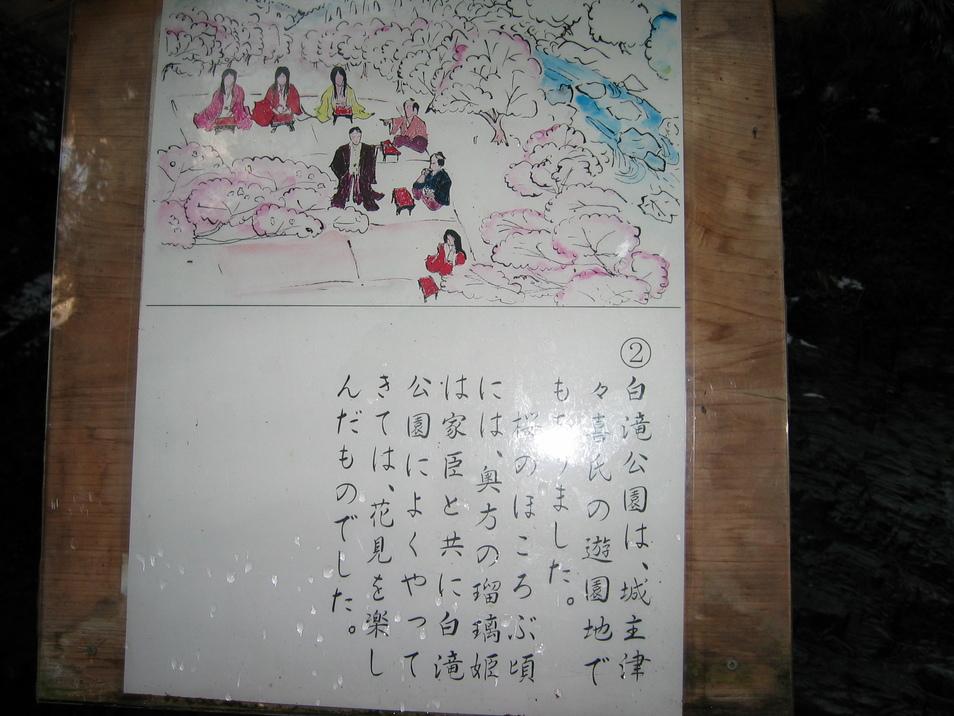 ②白滝公園は、城主津
々喜氏の遊園地で
もありました。
桜のほころぶ頃
には、奥方の瑠璃姫
は家臣と共に白滝
公園によくやって
きては、花見を楽し
んだものでした。